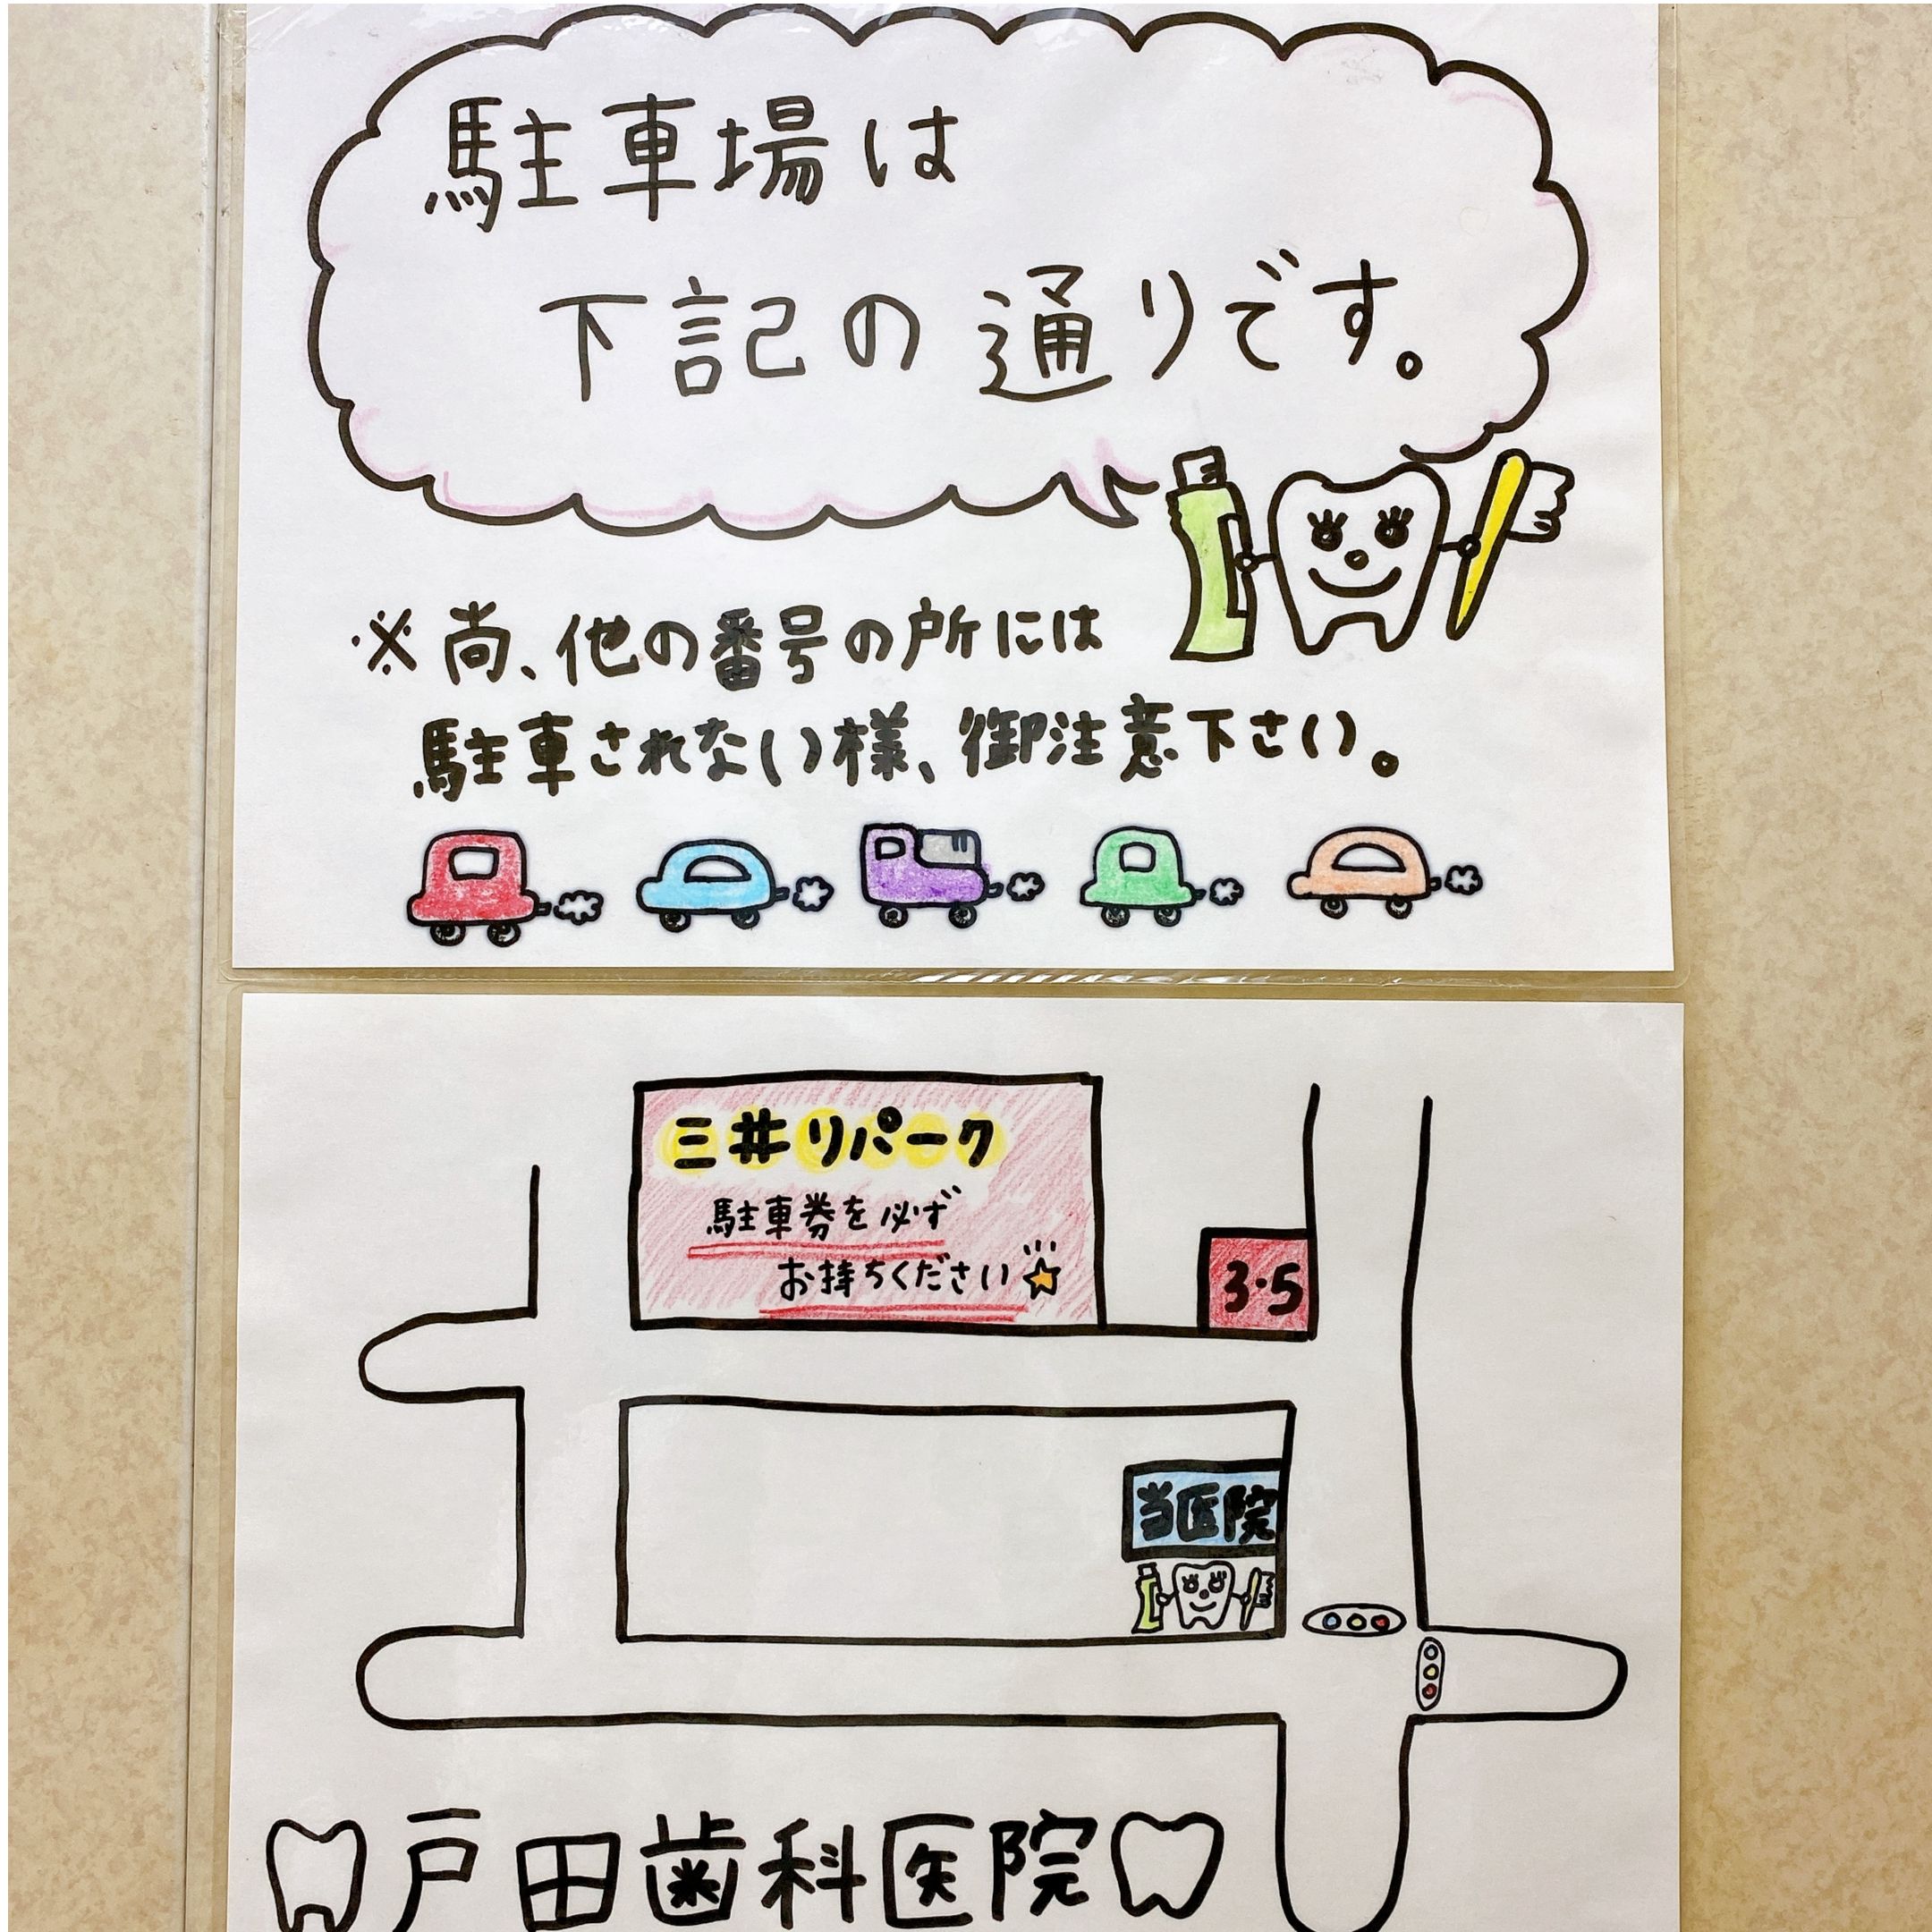 駐車場は
下記の通りです。
※尚、他の番号の所には
駐車されない様、御注意下さい。
三井リパーク
駐車券を必ず
お持ちください
3・5
当医院
戸田歯科医院